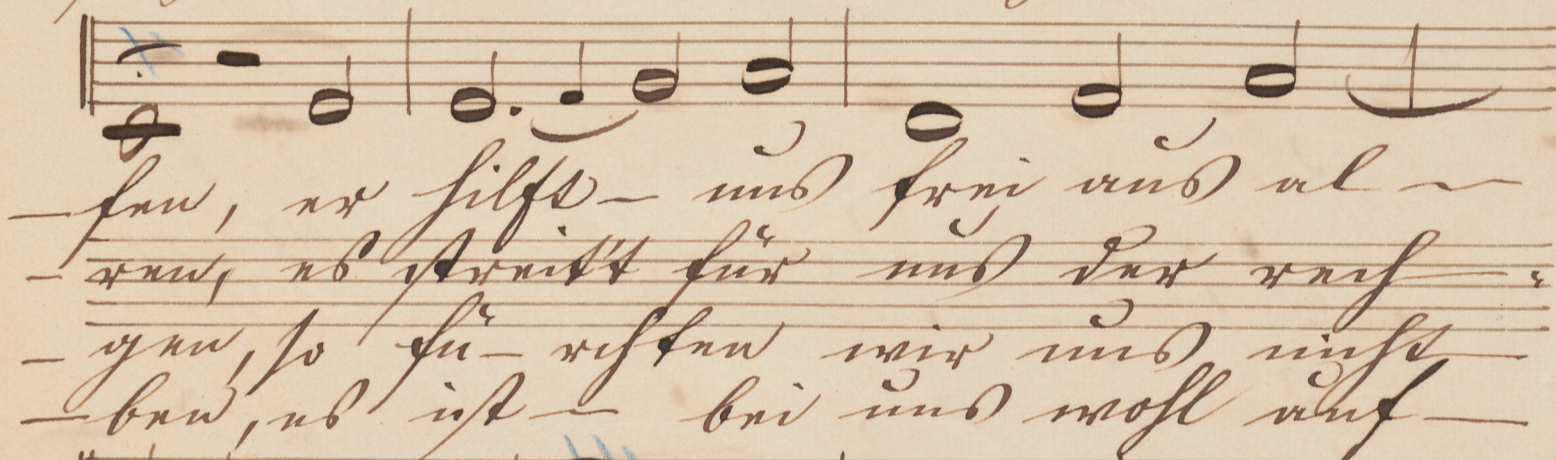 – fen, er hilft – uns frei aus al –
– ren, es streit't für uns der rech –
– gen, so fü – rchten wir uns nicht –
– ben, es ist – bei uns wohl auf –